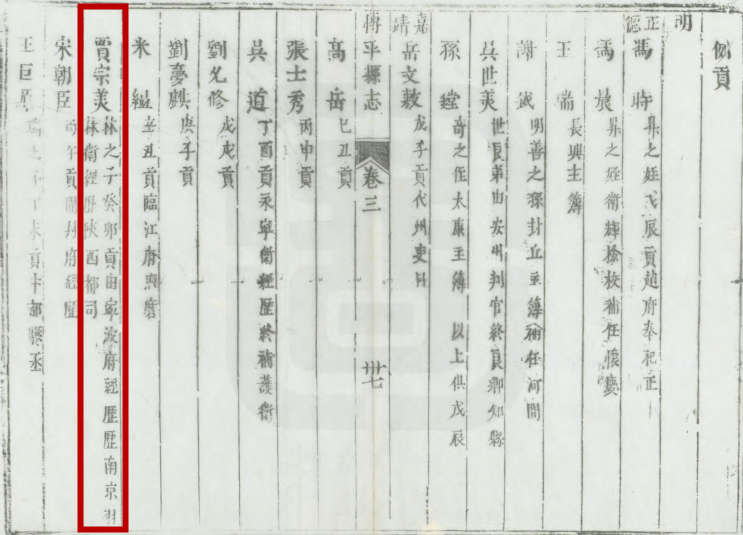 例貢
明
正德馮時昇之姪戊辰貢趙府奉祀正
馮於昇之姪衛經檢校補任懷慶
王 長興主簿
謝誠明善之孫封丘主簿補任河間
吳世美世良弟由安州判官終良鄉知縣
孫瑩奇之侄太康主簿 以上俱戊辰
嘉靖岳文敎戊子貢代州吏目
博平縣志 卷三 卅七
高岳己丑貢
張士秀丙申貢
吳道丁酉貢永寧衛經歷終補護衛
劉允修戊戌貢
劉夢麒庚子貢
米 辛丑貢臨江府照磨
賈宗美林之子癸卯貢由寧波府經歷歷南京羽
林衛經歷陝西都司
宋朝臣丙午貢開封府經歷
王巨 之子丁未貢中部縣丞